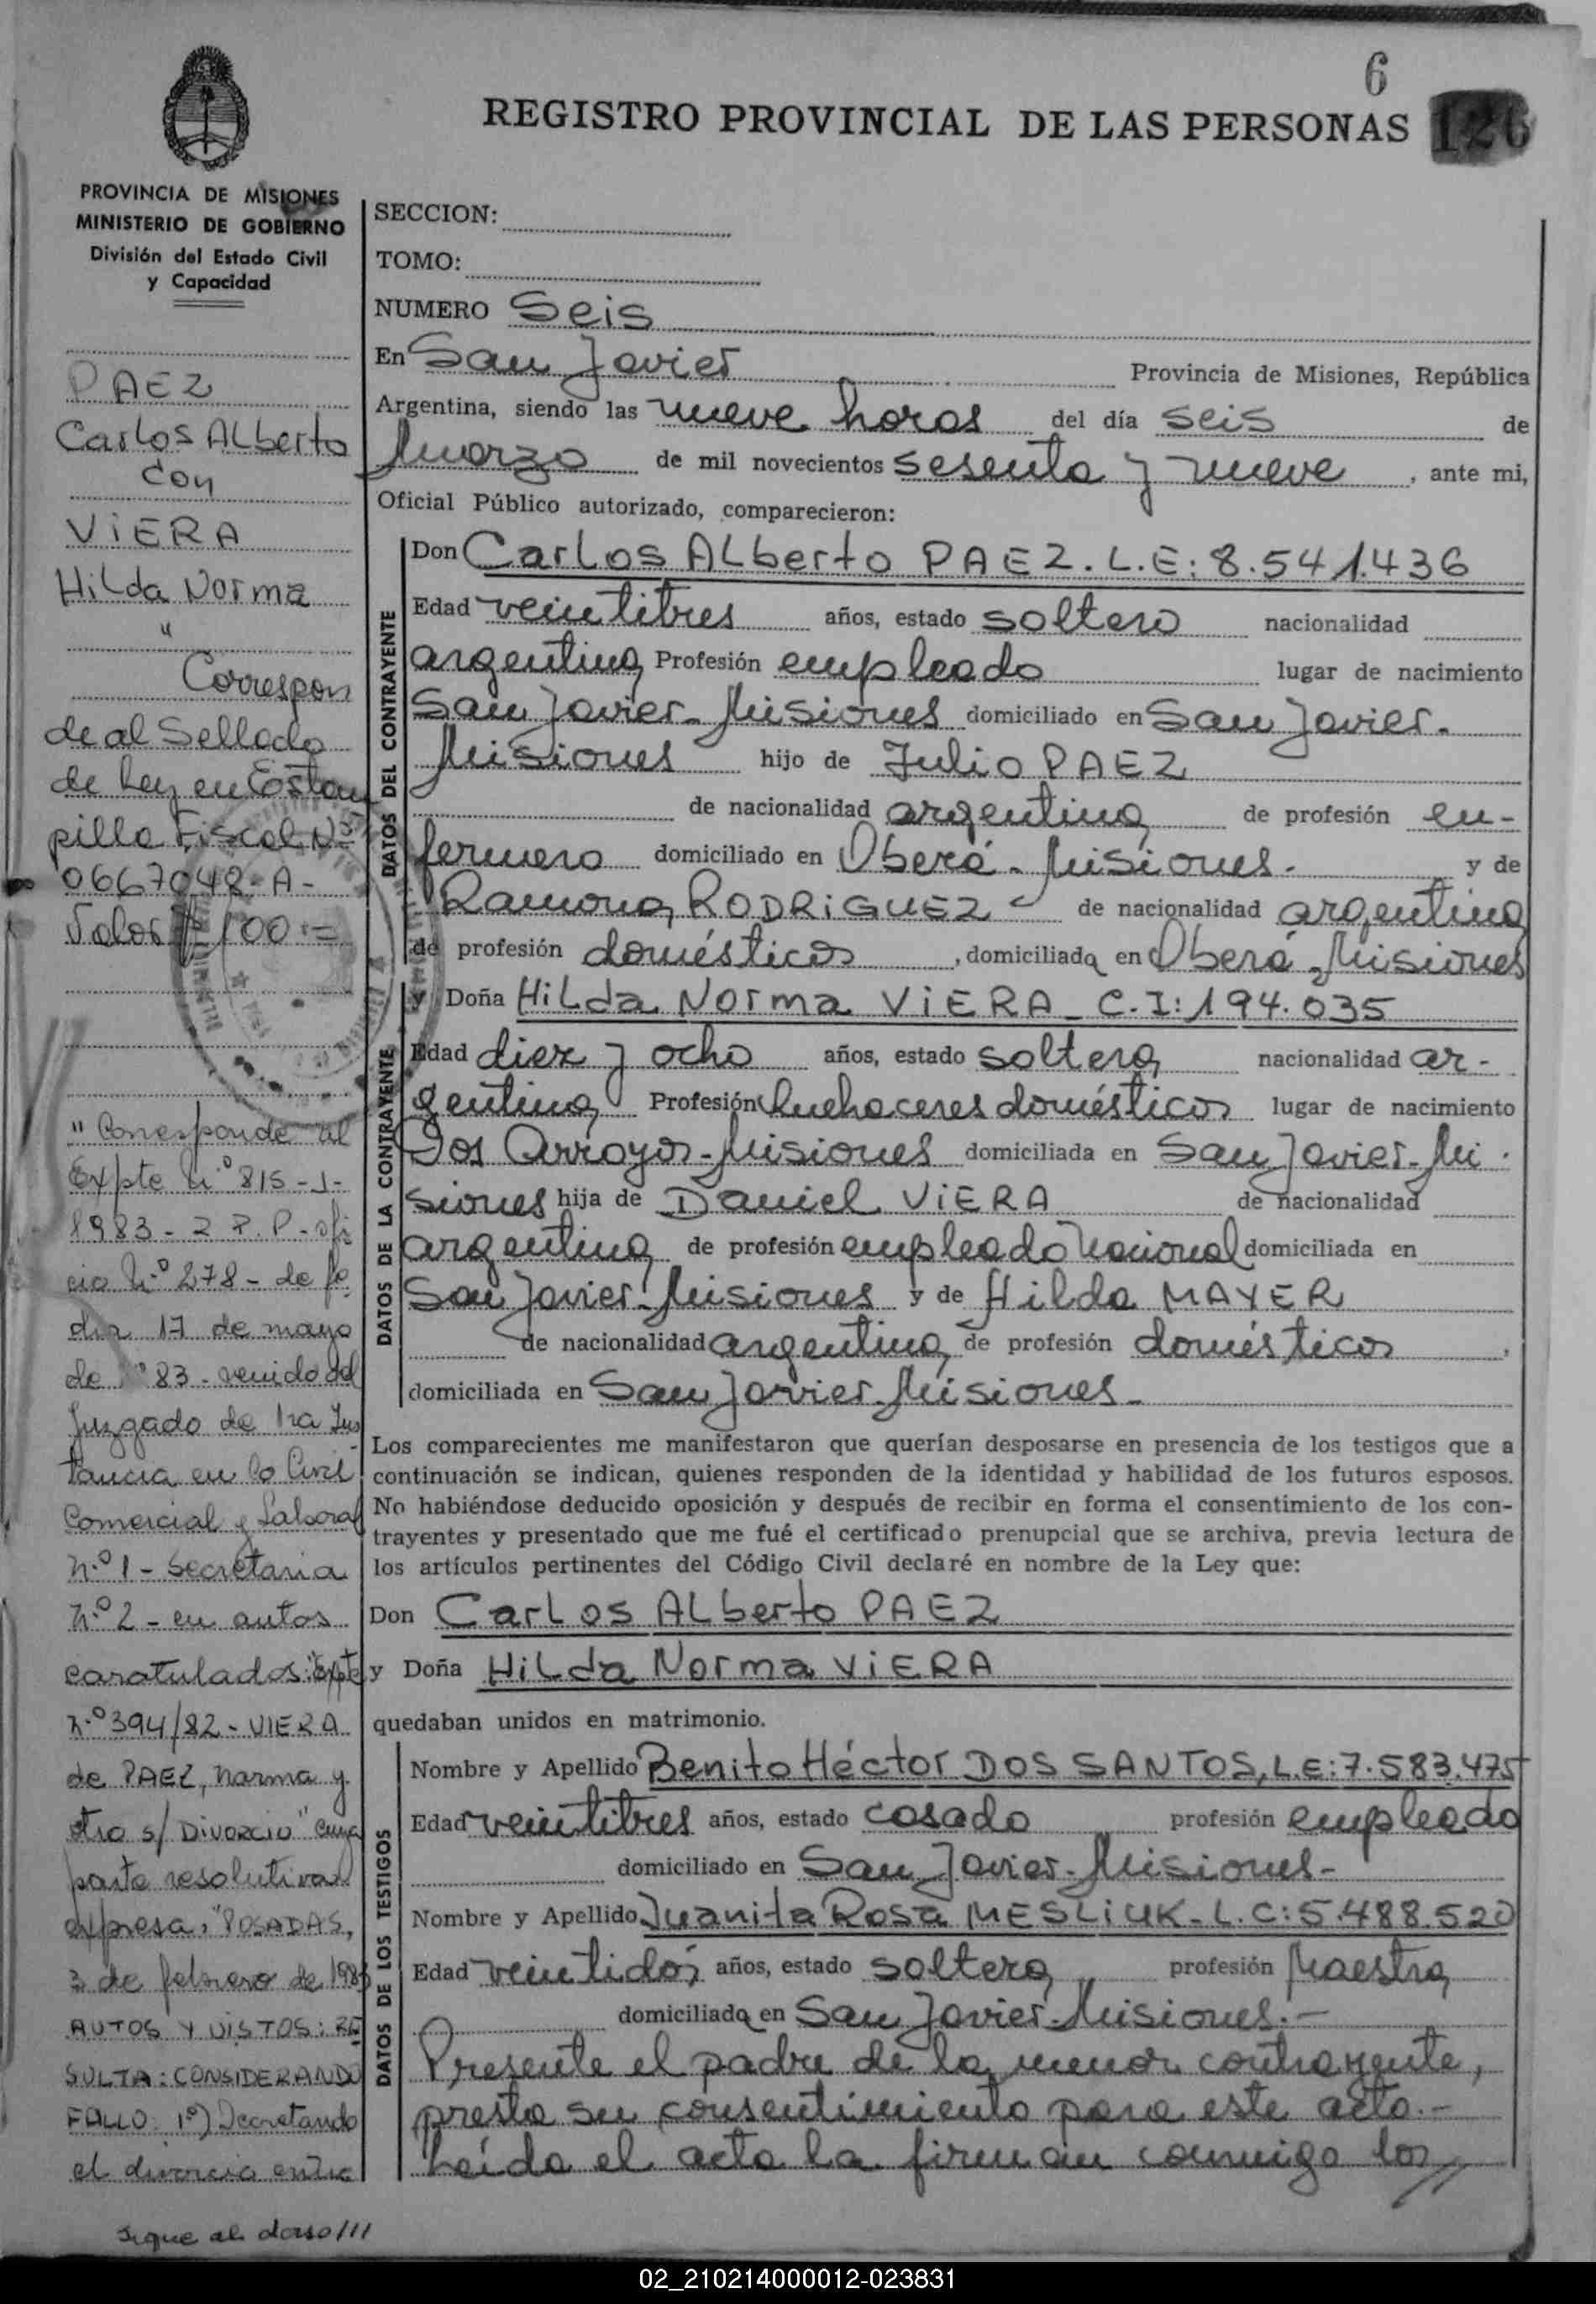 6
REGISTRO PROVINCIAL DE LAS PERSONAS 126
PROVINCIA DE MISIONES
MINISTERIO DE GOBIERNO
División del Estado Civil
y Capacidad
PAEZ
Carlos Alberto
con
VIERA
Hilda Norma
"
Correspon
de al Sellado
de Ley en Estam
pilla Fiscal Nº
0667048-A-
Valor $ 100.=
"Corresponde al
Expte Nº 815-J-
1983- 2 R.P- ofi
cio Nº 278- de fe
cha 17 de mayo
de 83- venido del
Juzgado de 1ra Ins
tancia en lo Civil
Comercial y Laboral
Nº 1- Secretaria
Nº 2- en autos
caratulados: "Expte
Nº 394/82- VIERA
de PAEZ, Norma y
otro s/ DIVORCIO" cuya
parte resolutiva
expresa, "POSADAS,
3 de febrero de 1983
AUTOS Y VISTOS: RE
SULTA: CONSIDERANDO
FALLO: 1º) Decretando
el divorcio entre
Sigue al dorso///
SECCION:
TOMO:
NUMERO Seis
En San Javier Provincia de Misiones, República
Argentina, siendo las nueve horas del día seis de
Marzo de mil novecientos sesenta y nueve, ante mi,
Oficial Público autorizado, comparecieron:
DATOS DEL CONTRAYENTE
Don Carlos Alberto PAEZ. L.E: 8.541.436
Edad veintitres años, estado soltero nacionalidad
argentina Profesión empleado lugar de nacimiento
San Javier-Misiones domiciliado en San Javier.
Misiones hijo de Julio PAEZ
de nacionalidad argentina de profesión en-
fermero domiciliado en Oberá-Misiones.- y de
Ramona RODRIGUEZ de nacionalidad argentina
de profesión domésticos, domiciliada en Oberá-Misiones
DATOS DE LA CONTRAYENTE
y Doña Hilda Norma VIERA- C.I: 194.035
Edad diez y ocho años, estado soltera nacionalidad ar-
gentina Profesión Quehaceres domésticos lugar de nacimiento
Dos Arroyos-Misiones domiciliada en San Javier-Mi-
siones hija de Daniel VIERA de nacionalidad
argentina de profesión empleado Nacional domiciliada en
San Javier-Misiones y de Hilda MAYER
de nacionalidad argentina de profesión domésticos,
domiciliada en San Javier-Misiones-
Los comparecientes me manifestaron que querían desposarse en presencia de los testigos que a
continuación se indican, quienes responden de la identidad y habilidad de los futuros esposos.
No habiéndose deducido oposición y después de recibir en forma el consentimiento de los con-
trayentes y presentado que me fué el certificado prenupcial que se archiva, previa lectura de
los artículos pertinentes del Código Civil declaré en nombre de la Ley que:
Don Carlos Alberto PAEZ
y Doña Hilda Norma VIERA
quedaban unidos en matrimonio.
DATOS DE LOS TESTIGOS
Nombre y Apellido Benito Héctor DOS SANTOS, L.E: 7.583.475
Edad veintitres años, estado casado profesión empleado
domiciliado en San Javier-Misiones-
Nombre y Apellido Juanita Rosa MESLIUK- L.C: 5.488.520
Edad veintidós años, estado soltera profesión Maestra
domiciliada en San Javier-Misiones.-
Presente el padre de la menor contrayente,
presta su consentimiento para este acto.-
Leída el acta la firman conmigo los//
02_210214000012-023831